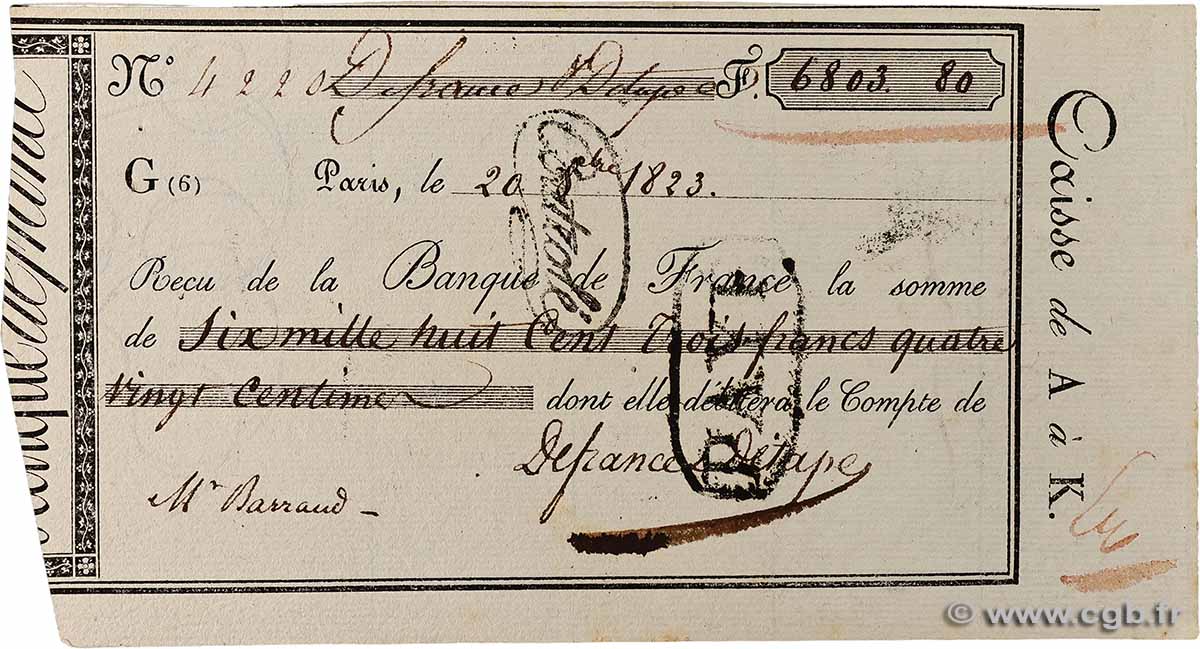 N° 4220 Defrance & Detape F. 6803. 80
G (6) Paris, le 20 8bre 1823.
Contrôlé
Reçu de la Banque de France la somme
de Six mille huit Cent Trois francs quatre
vingt Centime dont elle débitera le Compte de
Defrance & Detape
Mr Barraud
PAYÉ
Caisse de A à K.
© www.cgb.fr